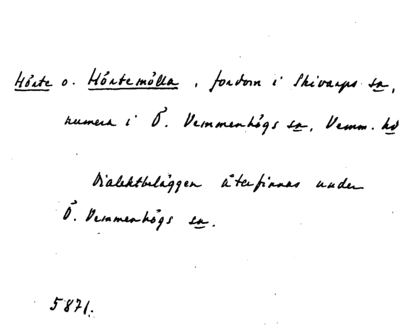 Hörte o. Hörtemölla, fordom i Skivarps sn,
numera i Ö. Vemmenhögs sn, Vemm. hd
Dialektbeläggen återfinnas under
Ö. Vemmenhögs sn.
5871.